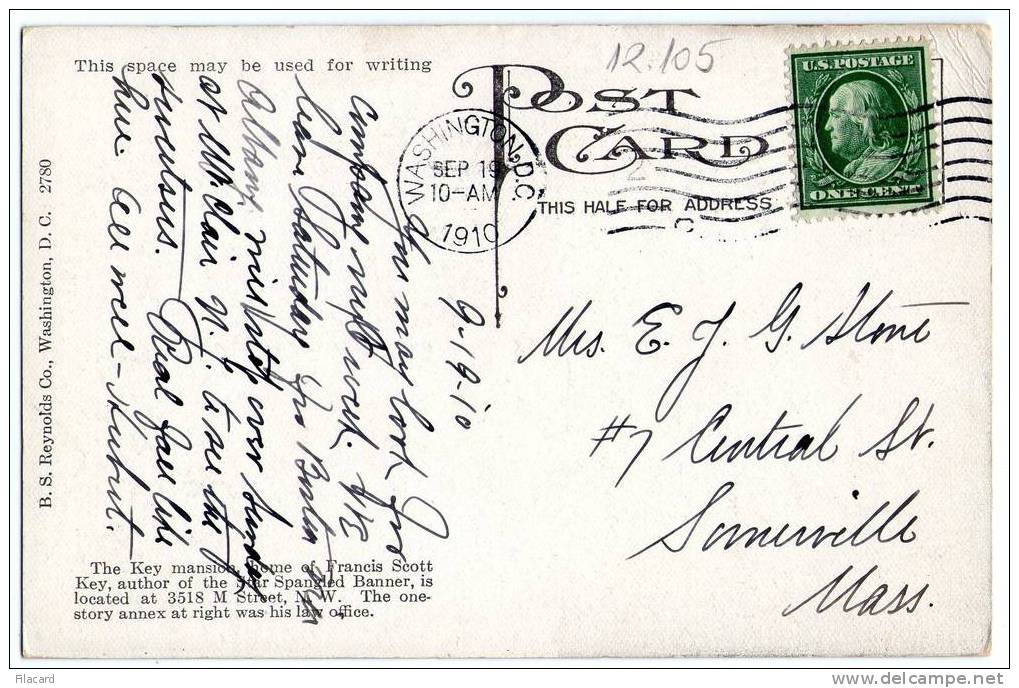 This space may be used for writing
12.105
POST CARD
THIS HALF FOR ADDRESS
WASHINGTON, D.C.
SEP 19
10-AM
1910
U.S. POSTAGE
ONE CENT
B. S. Reynolds Co., Washington, D. C. 2780
9-19-10
You may look for
night next.
leave Saturday for Boston
Albany over Sunday
at N. Y. to see the
Real fall like
here. All well -
Mrs. E. J. G. Stone
#7 Central St.
Somerville
Mass.
The Key mansion, home of Francis Scott
Key, author of the Star Spangled Banner, is
located at 3518 M Street, N. W. The one-
story annex at right was his law office.
Filacard
delcampe.net